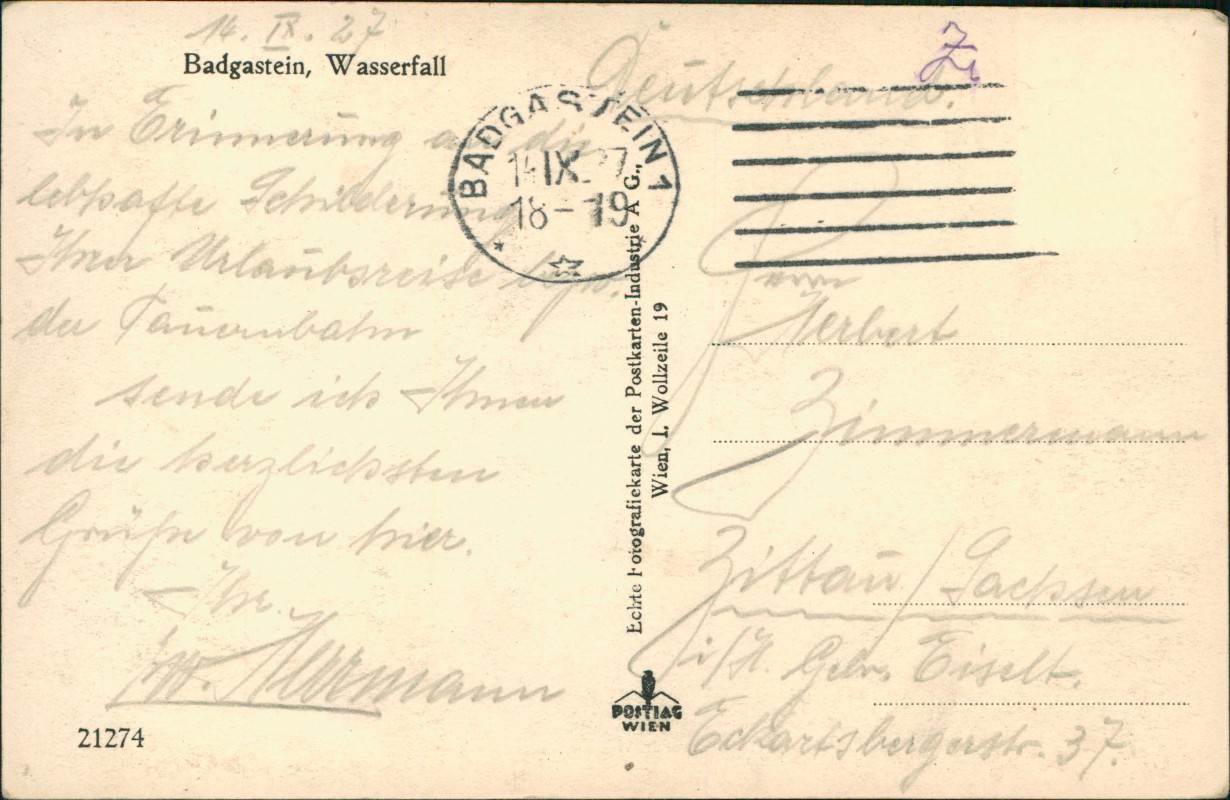 14. IX. 27
Badgastein, Wasserfall
In Erinnerung an die
lebhafte Schilderung
Ihrer Urlaubsreise bzw.
der Tauernbahn
sende ich Ihnen
die herzlichsten
Grüße von hier.
Ihr
Herrmann
21274
BADGASTEIN 1
14 IX 27
18-19
Echte Fotografiekarte der Postkarten-Industrie A G.,
Wien, I, Wollzeile 19
POSTIAG
WIEN
Deutschland.
Herrn
Herbert
Zimmermann
Zittau / Sachsen
i/H. Gebr. Eiselt.
Eckartsbergerstr. 37.